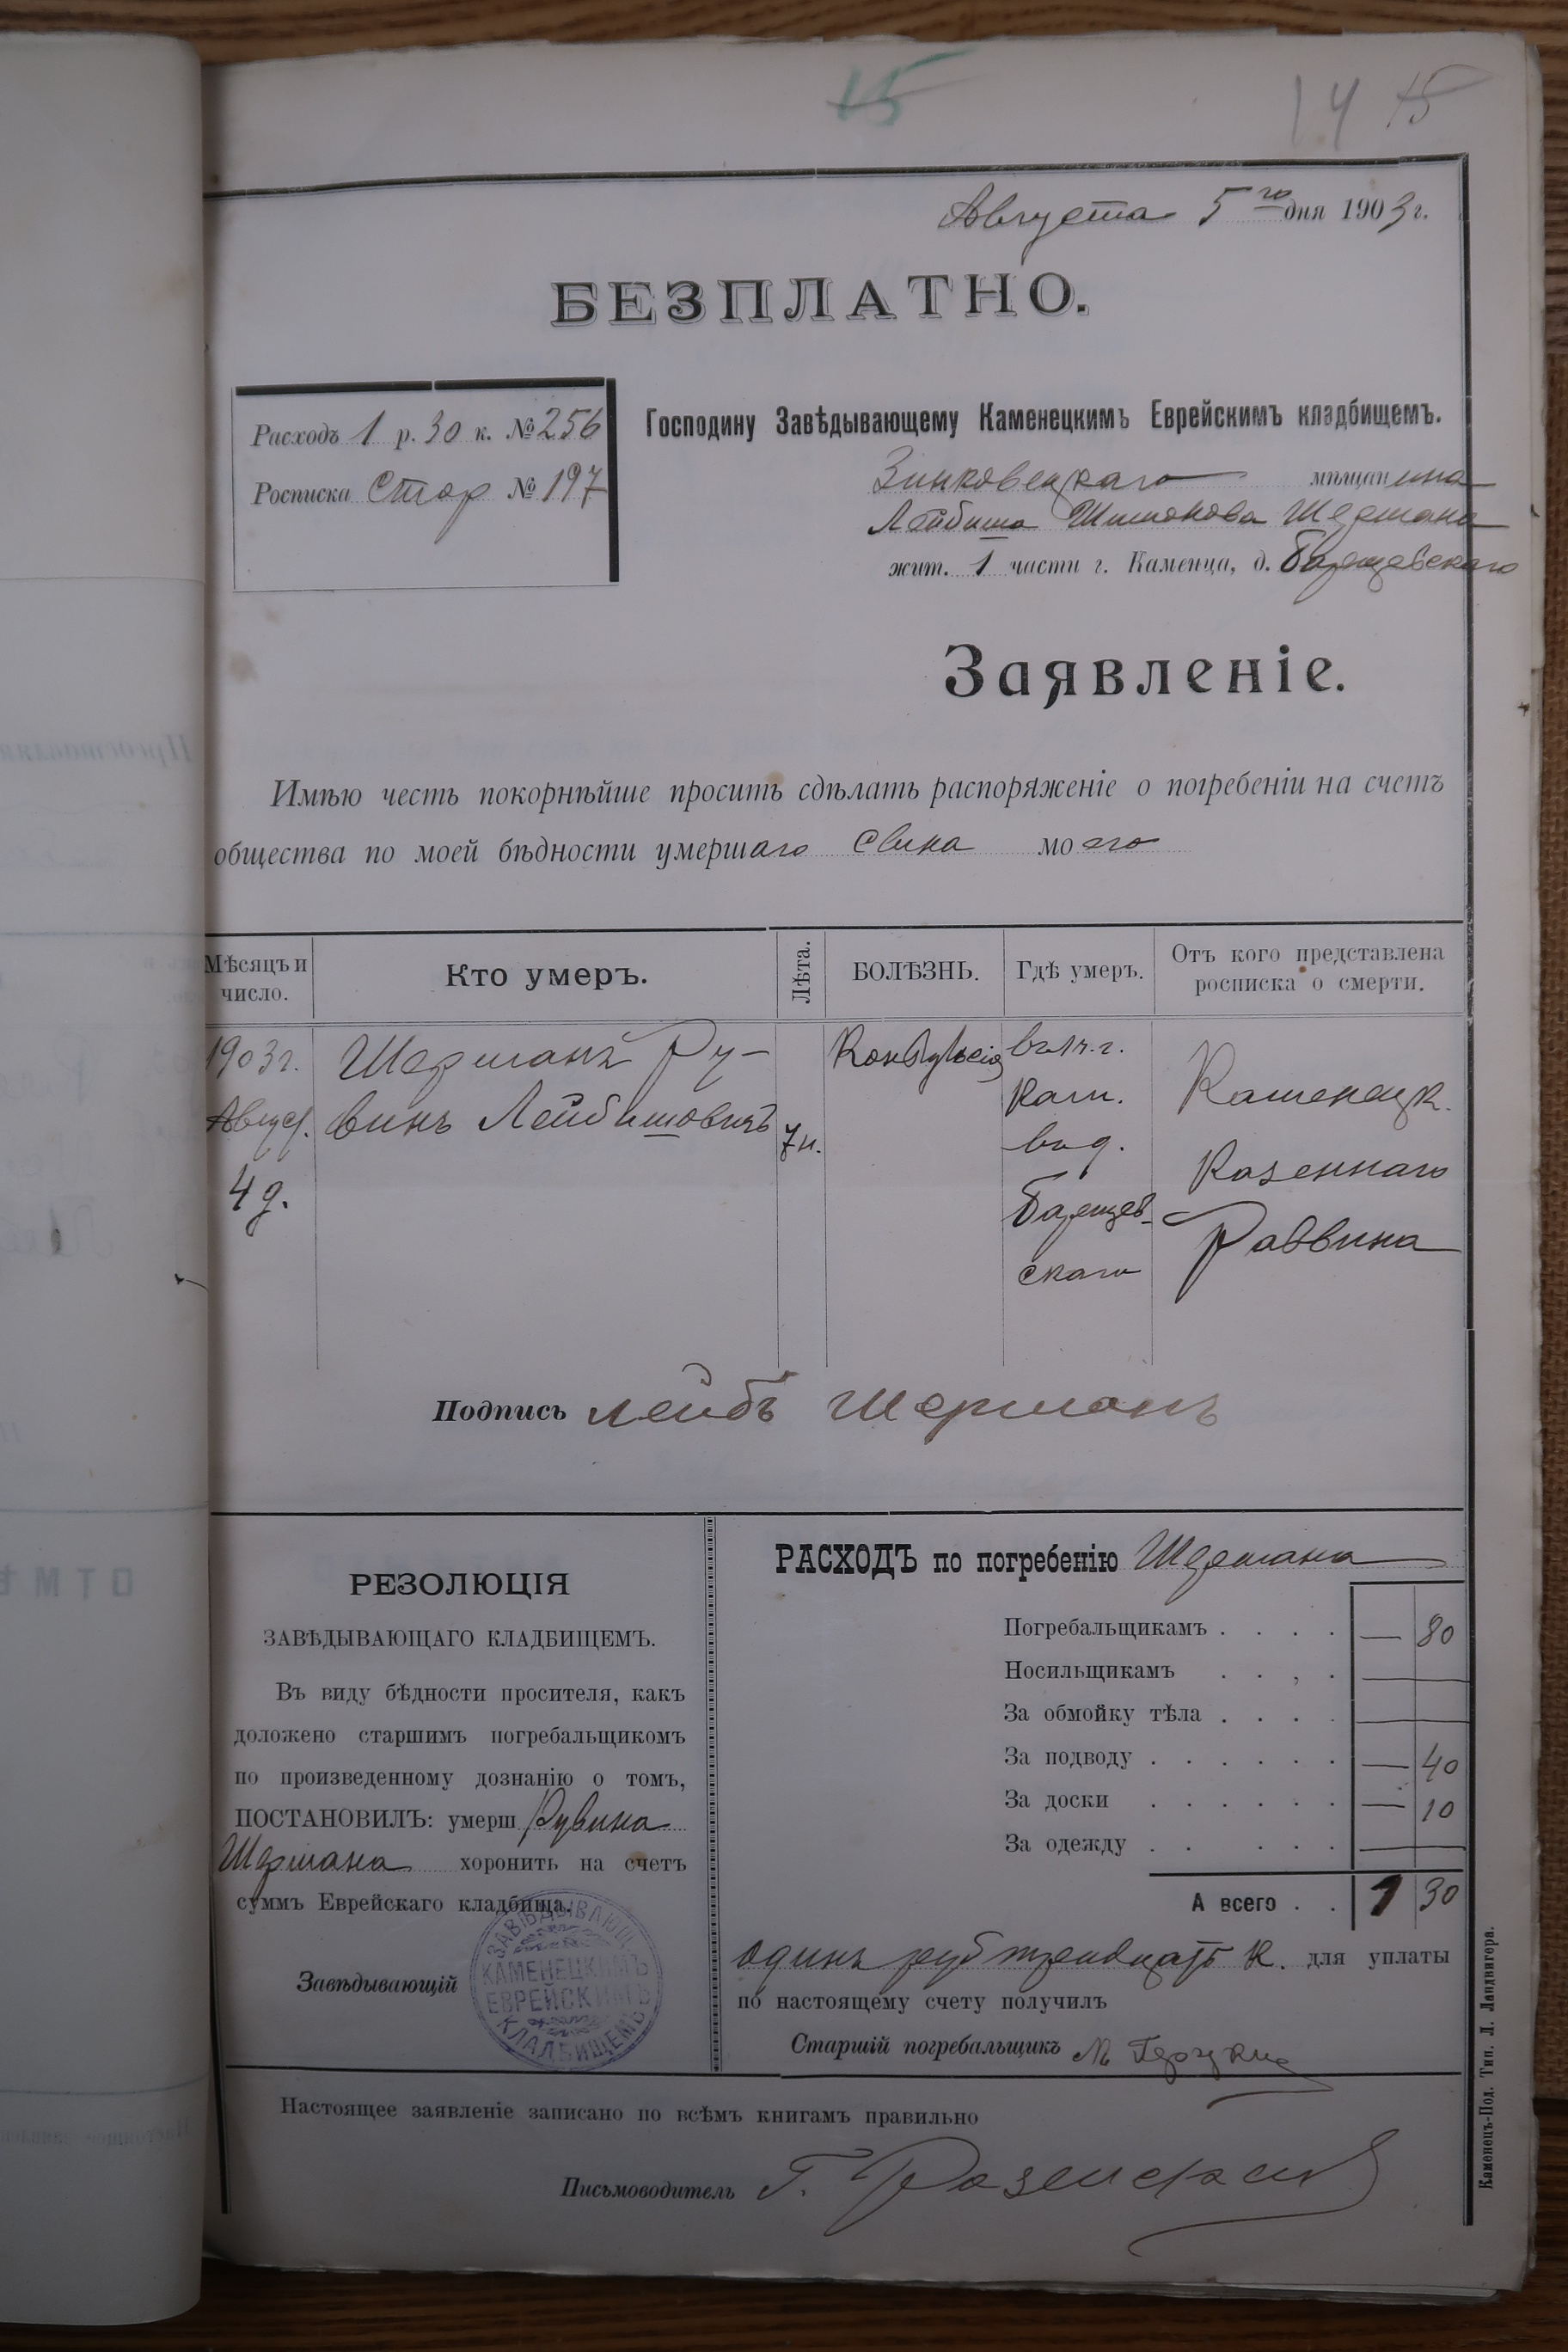 15
14 15
Августа 5го дня 1903 г.
БЕЗПЛАТНО.
Расходъ 1 р. 30 к. № 256
Росписка Стор № 197
Господину Завѣдывающему Каменецкимъ Еврейскимъ кладбищемъ.
Зинковецкаго мѣщанина
Лейбиша Шимонова Шермана
жит. 1 части г. Каменца, д. Барщевскаго
Заявленіе.
Имѣю честь покорнѣйше просить сдѣлать распоряженіе о погребеніи на счетъ
общества по моей бѣдности умершаго сына моего
Мѣсяцъ и число.
Кто умеръ.
Лѣта.
БОЛѢЗНЬ.
Гдѣ умеръ.
Отъ кого представлена росписка о смерти.
1903 г.
Август.
4 д.
Шерманъ Ру-
винъ Лейбишовичъ
7 н.
Конвульсія
въ 1 ч. г.
Кам.
въ д.
Барщев-
скаго
Каменецк.
Казеннаго
Раввина
Подпись Лейбъ Шерманъ
РЕЗОЛЮЦІЯ
ЗАВѢДЫВАЮЩАГО КЛАДБИЩЕМЪ.
Въ виду бѣдности просителя, какъ
доложено старшимъ погребальщикомъ
по произведенному дознанію о томъ,
ПОСТАНОВИЛЪ: умерш Рувина
Шермана хоронить на счетъ
суммъ Еврейскаго кладбища.
Завѣдывающій
ЗАВѢДЫВАЮЩ.
КАМЕНЕЦКИМЪ
ЕВРЕЙСКИМЪ
КЛАДБИЩЕМЪ
РАСХОДЪ по погребенію Шермана
Погребальщикамъ . . . . — 80
Носильщикамъ . . , . —
За обмойку тѣла . . . . —
За подводу . . . . . . — 40
За доски . . . . . . — 10
За одежду . . . . . . —
А всего . . 1 30
одинъ руб тридцать К. для уплаты
по настоящему счету получилъ
Старшій погребальщикъ М
Настоящее заявленіе записано по всѣмъ книгамъ правильно
Письмоводитель Г.
Каменецъ-Под. Тип. Л. Ландвигера.